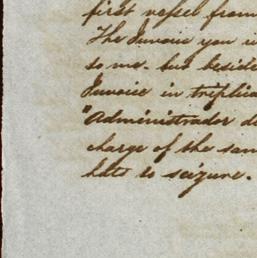 first vessel from
The Invoice you i
so me. but beside
Invoice in triplica
"Administrador d
charge of the sam
hdts to seizure.